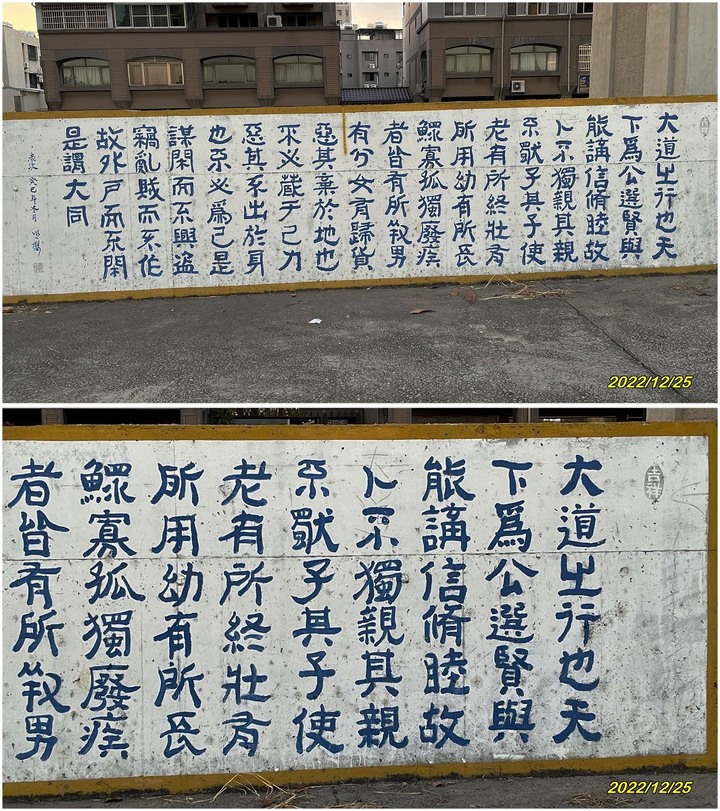 大道之行也天
下爲公選賢與
能講信脩睦故
人不獨親其親
不獨子其子使
老有所終壯有
所用幼有所長
鰥寡孤獨廢疾
者皆有所養男
有分女有歸貨
惡其棄於地也
不必藏于己力
惡其不出於身
也不必爲己是
謀閉而不興盗
竊亂賊而不作
故外戶而不閉
是謂大同
癸巳年冬月
2022/12/25
吉祥
大道之行也天
下爲公選賢與
能講信脩睦故
人不獨親其親
不獨子其子使
老有所終壯有
所用幼有所長
鰥寡孤獨廢疾
者皆有所養男
2022/12/25